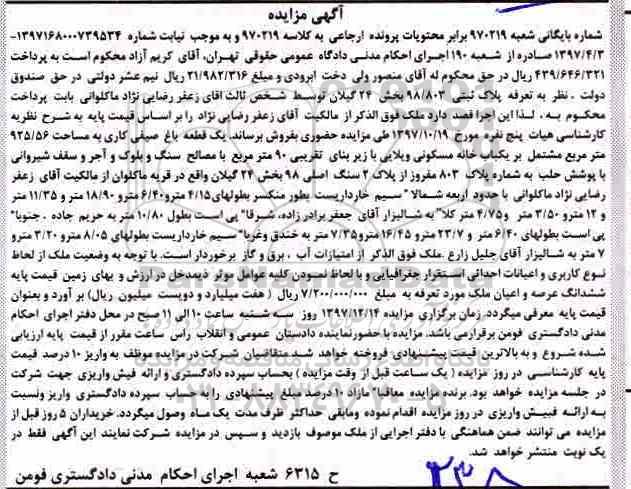 آگهی مزایده
شماره بایگانی شعبه ۹۷۰۲۱۹ برابر محتویات پرونده ارجاعی به کلاسه ۹۷۰۲۱۹ و به موجب نیابت شماره ۱۳۹۷۱۶۸۰۰۰۷۳۹۵۳۴-
۱۳۹۷/۴/۳ صادره از شعبه ۱۹۰ اجرای احکام مدنی دادگاه عمومی حقوقی تهران، آقای کریم آزاد محکوم است به پرداخت
۴۳۹/۶۴۶/۳۲۱ ریال در حق محکوم له آقای منصور ولی دخت ابرودی و مبلغ ۲۱/۹۸۲/۳۱۶ ریال نیم عشر دولتی در حق صندوق
دولت . نظر به تعرفه پلاک ثبتی ۹۸/۸۰۳ بخش ۲۴ گیلان توسط شخص ثالث اقای زعفر رضایی نژاد ماکلوانی بابت پرداخت
محکوم به ، لذا این اجرا قصد دارد ملک فوق الذکر از مالکیت آقای زعفر رضایی نژاد را بر اساس قیمت پایه به شرح نظریه
کارشناسی هیات پنج نفره مورخ ۱۳۹۷/۱۰/۱۹ طی مزایده حضوری بفروش برساند. یک قطعه باغ صیفی کاری به مساحت ۹۲۵/۵۶
متر مربع مشتمل بر یکباب خانه مسکونی ویلایی با زیر بنای تقریبی ۹۰ متر مربع با مصالح سنگ و بلوک و آجر و سقف شیروانی
با پوشش حلب به شماره پلاک ۸۰۳ مفروز از پلاک ۲ سنگ اصلی ۹۸ بخش ۲۴ گیلان واقع در قریه ماکلوان از مالکیت آقای زعفر
رضایی نژاد ماکلوانی با حدود اربعه شمالا " سیم خارداریست بطور منکسر بطولهای ۴/۱۵ مترو ۶/۴۰ مترو ۱۸/۹۰ متر و ۱۱/۳۵ متر
و ۱۲ مترو ۳/۵۰ متر و ۴/۷۵ متر کلا" به شالیزار آقای جعفر برادر زاده، شرقا" پی است بطول ۱۰/۸۰ متر به حریم جاده . جنوبا"
پی است بطولهای ۶/۴۰ متر و ۲۳/۷ مترو ۱۶/۴۵ مترو ۷/۳۵ متر به خندق وغربا" سیم خارداریست بطولهای ۸/۰۵ مترو ۳/۲۰ مترو
۷ متر به شالیزار آقای جلیل زارع .ملک فوق الذکر از امتیازات آب ، برق و گاز برخوردار است. با توجه به وضعیت ملک از لحاظ
نوع کاربری و اعیانات احداثی استقرار جغرافیایی و با لحاظ نمودن کلیه عوامل موثر ذیمدخل در ارزش و بهای زمین قیمت پایه
ششدانگ عرصه و اعیان ملک مورد تعرفه به مبلغ ۷/۲۰۰/۰۰۰/۰۰۰ ریال ( هفت میلیارد و دویست میلیون ریال) بر آورد و بعنوان
قیمت پایه معرفی میگردد. زمان برگزاری مزایده ۱۳۹۷/۱۲/۱۴ روز سه شنبه ساعت ۱۰ الی ۱۱ صبح در محل دفتر اجرای احکام
مدنی دادگستری فومن برقرار می باشد. مزایده با حضور نماینده دادستان عمومی و انقلاب راس ساعت مقرر از قیمت پایه ارزیابی
شده شروع و به بالاترین قیمت پیشنهادی فروخته خواهد شد متقاضیان شرکت در مزایده موظف به واریز ۱۰ درصد قیمت
پایه کارشناسی در روز مزایده ( یک ساعت قبل از وقت مزایده ) بحساب سپرده دادگستری و ارائه فیش واریزی جهت شرکت
در جلسه مزایده خواهد بود. برنده مزایده معاقبا مازاد ۱۰ درصد مبلغ پیشنهادی را به حساب سپرده دادگستری واریز ونسبت
به ارائه فیبش واریزی در روز مزایده اقدام نموده ومابقی حداکثر ظرف مدت یک ماه وصول میگردد. خریداران ۵ روز قبل از
مزایده می توانند ضمن هماهنگی با دفتر اجرایی از ملک موصوف بازدید و سپس در مزایده شرکت نمایند این آگهی فقط در
یک نوبت منتشر خواهد شد.
ح ۶۳۱۵ شعبه اجرای احکام مدنی دادگستری فومن
۲۳۸